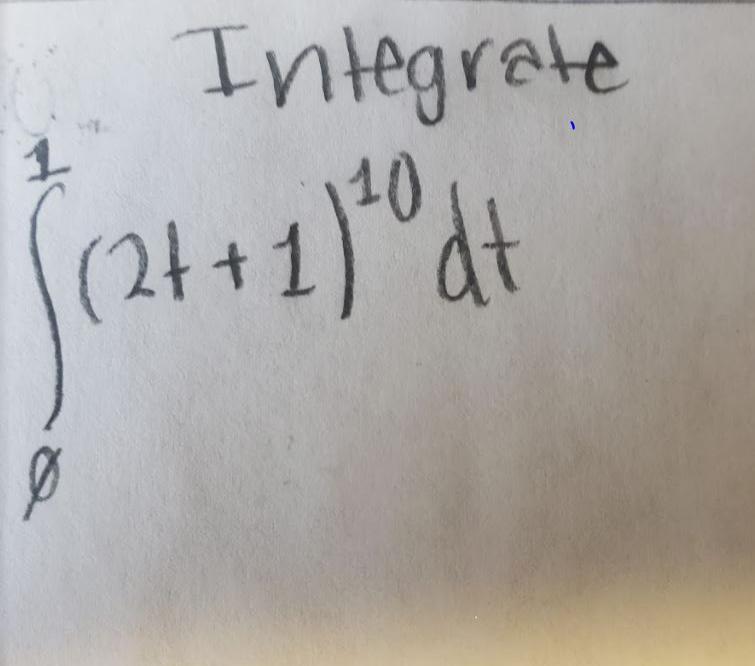 Integrate
1
∫(2t+1)^10 dt
0